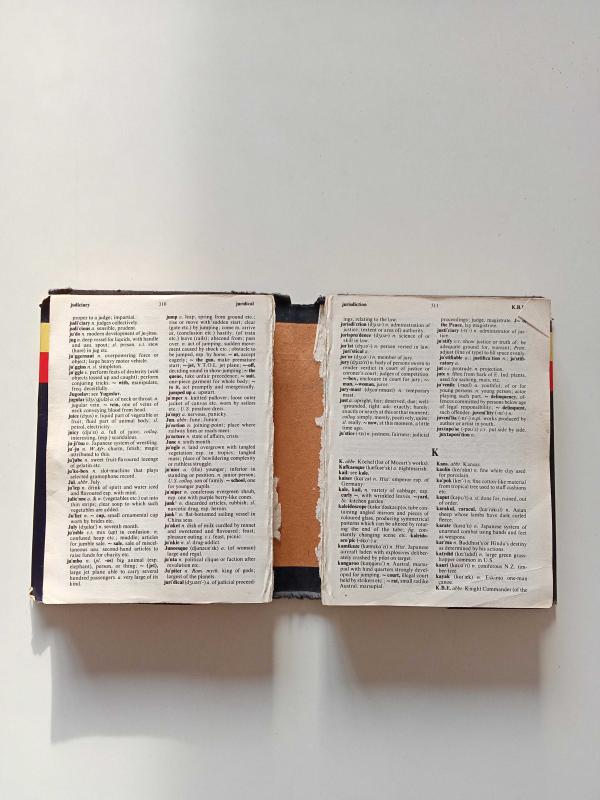 judiciary 310 juridical
proper to a judge; impartial.
judi'ciary n. judges collectively.
judi'cious a. sensible, prudent.
ju'do n. modern development of ju-jitsu.
jug n. deep vessel for liquids, with handle
and usu. spout; sl. prison. v.t. stew
(hare) in jug etc.
ju'ggernaut n. overpowering force or
object; large heavy motor vehicle.
ju'ggins n. sl. simpleton.
ju'ggle v. perform feats of dexterity (with
objects tossed up and caught); perform
conjuring tricks. ~ with, manipulate,
Jugoslav: see Yugoslav.
ju'gular a. of neck or throat. n.
jugular vein. ~ vein, one of veins of
neck conveying blood from head.
juice n. liquid part of vegetable or
fruit; fluid part of animal body; sl.
petrol, electricity.
juicy a. full of juice; colloq.
interesting, (esp.) scandalous.
ju-ji'tsu n. Japanese system of wrestling.
ju'-ju n. charm, fetish; magic
attributed to this.
ju'jube n. sweet fruit-flavoured lozenge
of gelatin etc.
ju'ke-box n. slot-machine that plays
selected gramophone record.
Jul. abbr. July.
ju'lep n. drink of spirit and water iced
and flavoured esp. with mint.
julie'nne n. & a. (vegetables etc.) cut into
thin strips; clear soup to which such
vegetables are added.
Ju'liet n. ~ cap, small ornamental cap
worn by brides etc.
July n. seventh month.
ju'mble v.t. mix (up) in confusion. n.
confused heap etc.; muddle; articles
for jumble sale. ~ sale, sale of miscel-
laneous usu. second-hand articles to
raise funds for charity etc.
ju'mbo n. (pl. -os) big animal (esp.
elephant), person, or thing; ~ (jet),
large jet plane able to carry several
hundred passengers. a. very large of its
kind.
jump v. leap, spring from ground etc.;
rise or move with sudden start; clear
(gate etc.) by jumping; come to, arrive
at, (conclusion etc.) hastily; (of train
etc.) leave (rails); abscond from; pass
over. n. act of jumping; sudden move-
ment caused by shock etc.; obstacle to
be jumped, esp. by horse. ~ at, accept
eagerly; ~ the gun, make premature
start; ~-jet, V.T.O.L. jet plane; ~-off,
deciding round in show-jumping; ~ the
queue, take unfair precedence; ~ suit,
one-piece garment for whole body; ~
to it, act promptly and energetically.
jumped up a. upstart.
ju'mper n. knitted pullover; loose outer
jacket of canvas etc. worn by sailors
etc.; U.S. pinafore dress.
ju'mpy a. nervous, panicky.
Jun. abbr. June; Junior.
ju'nction n. joining-point; place where
railway lines or roads meet.
ju'ncture n. state of affairs, crisis.
June n. sixth month.
ju'ngle n. land overgrown with tangled
vegetation esp. in tropics; tangled
mass; place of bewildering complexity
or ruthless struggle.
ju'nior a. (the) younger; inferior in
standing or position. n. junior person;
U.S. colloq. son of family. ~ school, one
for younger pupils.
ju'niper n. coniferous evergreen shrub,
esp. one with purple berry-like cones.
junk¹ n. discarded articles, rubbish; sl.
narcotic drug, esp. heroin.
junk² n. flat-bottomed sailing vessel in
China seas.
ju'nket n. dish of milk curdled by rennet
and sweetened and flavoured; feast;
pleasure outing. v.i. feast, picnic.
ju'nkie n. sl. drug-addict.
ju'nta n. political clique or faction after
revolution etc.
Junoesque a. (of woman)
large and regal.
Ju'piter n. Rom. myth. king of gods;
largest of the planets.
juri'dical a. of judicial proceed-
jurisdiction 311
ings, relating to the law.
jurisdi'ction n. administration of
justice; (extent or area of) authority.
jurispru'dence n. science of or
skill in law.
jur'ist n. person versed in law.
juri'stical a.
jur'or n. member of jury.
jur'y n. body of persons sworn to
render verdict in court of justice or
coroner's court; judges of competition.
~-box, enclosure in court for jury; ~-
man, ~-woman, juror.
jury-mast n. temporary
mast.
just a. upright, fair; deserved, due; well-
grounded, right. adv. exactly; barely;
exactly or nearly at this or that moment;
colloq. simply, merely, positively, quite;
sl. really. ~ now, at this moment, a little
time ago.
ju'stice n. justness, fairness; judicial
proceedings; judge, magistrate.
the Peace, lay magistrate.
ju'stify v.t. show justice or truth of; be
adequate ground for, warrant; Print.
adjust (line of type) to fill space evenly.
jut v.i. protrude. n. projection.
jute n. fibre from bark of E. Ind. plants,
used for sacking, mats, etc.
ju'venile a. youthful; of or for
young persons. n. young person; actor
playing such part. ~ delinquency, of-
fences committed by persons below age
of legal responsibility; ~ delinquent,
such offender.
author or artist in youth.
juxtapo'se v.t. put side by side.
juxtaposi'tion n.
K
K. abbr. Köchel (list of Mozart's works).
Kafkaesque a. nightmarish.
kail: see kale.
kaiser n. Hist. emperor esp. of
Germany.
kale, kail, n. variety of cabbage, esp.
curly ~, with wrinkled leaves. ~-yard,
Sc. kitchen garden.
kaleidoscope n. tube con-
taining angled mirrors and pieces of
coloured glass, producing symmetrical
patterns which can be altered by rotat-
ing the end of the tube; fig. con-
stantly changing scene etc. kaleido-
sco'pic a.
kamikaze n. Hist. Japanese
aircraft laden with explosives deliber-
ately crashed by pilot on target.
kangaroo n. Austral. marsu-
pial with hind quarters strongly devel-
oped for jumping. ~ court, illegal court
held by strikers etc.; ~ rat, small ratlike
Austral. marsupial.
Kans. abbr. Kansas.
kaolin n. fine white clay used
for porcelain.
ka'pok n. fine cotton-like material
from tropical tree used to stuff cushions
etc.
kaput a. sl. done for, ruined, out
of order.
karakul, caracul, n. Asian
sheep whose lambs have dark curled
fleece.
karate n. Japanese system of
unarmed combat using hands and feet
as weapons.
kar'ma n. Buddhist's or Hindu's destiny
as determined by his actions.
katydid n. large green grass-
hopper common in U.S.
kauri n. coniferous N.Z. tim-
ber-tree.
kayak n. Eskimo one-man
canoe.
K.B.E. abbr. Knight Commander (of the